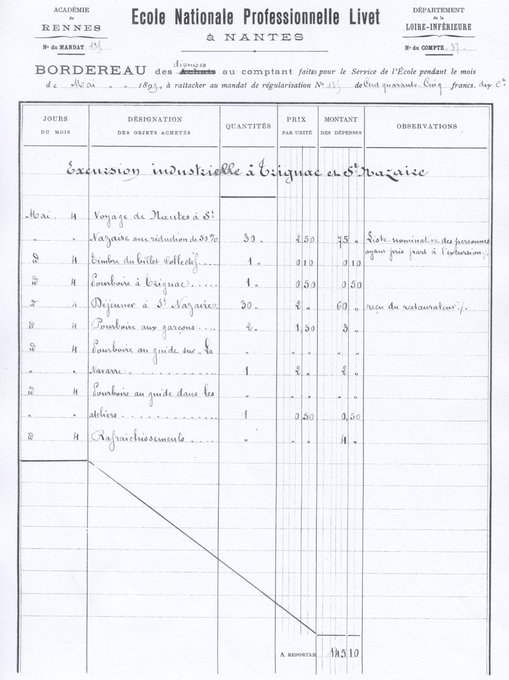 ACADÉMIE
DE
RENNES
N° DU MANDAT 135
Ecole Nationale Professionnelle Livet
À NANTES
DÉPARTEMENT
DE LA
LOIRE-INFÉRIEURE
N° DU COMPTE 37
dépenses
BORDEREAU des Achats au comptant faits pour le Service de l'École pendant le mois
de Mai 1899, à rattacher au mandat de régularisation N° 135 de Cent quarante-Cinq francs dix Cmes
JOURS DU MOIS DÉSIGNATION DES OBJETS ACHETÉS QUANTITÉS PRIX PAR UNITÉ MONTANT DES DÉPENSES OBSERVATIONS
Excursion industrielle à Trignac et St Nazaire
Mai 4 Voyage de Nantes à St
" " Nazaire avec réduction de 50% 30 " 2 50 75 " Liste nominative des personnes
ayant pris part à l'excursion ./.
do 4 Timbre du billet Collectif 1 " 0 10 0 10
do 4 Pourboire à Trignac 1 " 0 50 0 50
do 4 Déjeuner à St Nazaire 30 " 2 " 60 " reçu du restaurateur ./.
do 4 Pourboire aux garçons 2 " 1 50 3 "
do 4 Pourboire au guide sur La " " " " "
" " Navarre 1 2 " 2 "
do 4 Pourboire au guide dans les " " " " "
" " ateliers 1 0 50 0 50
do 4 Rafraîchissements 4 "
A REPORTER 145 10